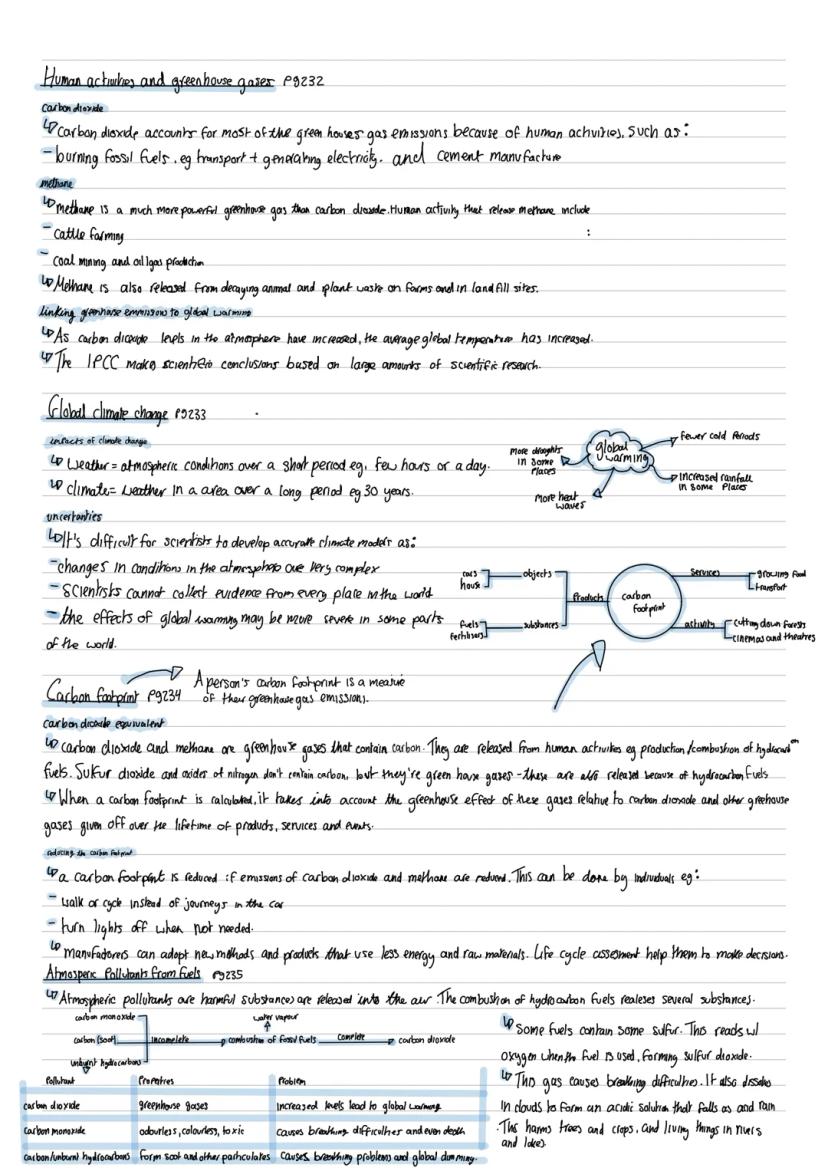 Human activities and greenhouse gases Pg232
Carbon dioxide
↳ Carbon dioxide accounts for most of the green houses gas emissions because of human activities, such as:
- burning fossil fuels, eg transport + generating electricity. and cement manufacture
methane
↳ methane is a much more powerful greenhouse gas than carbon dioxide. Human activity that release methane include
- cattle farming :
- coal mining and oil/gas production
↳ Methane is also released from decaying animal and plant waste on farms and in landfill sites.
linking greenhouse emmisions to global warming
↳ As carbon dioxide levels in the atmosphere have increased, the average global temperature has increased.
↳ The IPCC makes scientific conclusions based on large amounts of scientific research.
Global climate change Pg233
impacts of climate change
↳ Weather = atmospheric conditions over a short period eg. few hours or a day.
↳ climate = weather in a area over a long period eg 30 years.
global warming
Fewer cold periods
More droughts in some places
Increased rainfall in some places
More heat waves
uncertanties
↳ It's difficult for scientists to develop accurate climate models as:
- changes in conditions in the atmosphere are very complex
- scientists cannot collect evidence from every place in the world
- the effects of global warming may be more severe in some parts
of the world.
cars
house
objects
Products
fuels
fertilisers
substances
carbon footprint
Services
growing food
transport
activity
cutting down forests
cinemas and theatres
Carbon footprint Pg234
A person's carbon footprint is a measure
of their greenhouse gas emissions.
carbon dioxide equivalent
↳ carbon dioxide and methane are greenhouse gases that contain carbon. They are released from human activities eg production/combustion of hydrocarbon
fuels. Sulfur dioxide and oxides of nitrogen don't contain carbon, but they're green house gases - these are also released because of hydrocarbon fuels
↳ When a carbon footprint is calculated, it takes into account the greenhouse effect of these gases relative to carbon dioxide and other greehouse
gases given off over the lifetime of products, services and events.
reducing the carbon footprint
↳ a carbon footprint is reduced if emissions of carbon dioxide and methane are reduced. This can be done by individuals eg:
- walk or cycle instead of journeys in the car
- turn lights off when not needed.
↳ manufacturers can adopt new methods and products that use less energy and raw materials. Life cycle assesment help them to make decisions.
Atmosperic Pollutants from fuels Pg235
↳ Atmospheric pollutants are harmful substances are released into the air. The combustion of hydrocarbon fuels realeses several substances.
carbon monoxide
carbon (soot)
unburnt hydrocarbons
incomplete
water vapour
combustion of fossil fuels
complete
carbon dioxide
Pollutant Properties Problem
carbon dioxide greenhouse gases increased levels lead to global warming
carbon monoxide odourless, colourless, toxic causes breathing difficulties and even death
carbon/unburnt hydrocarbons form soot and other particulates causes breathing problems and global dimming.
↳ some fuels contain some sulfur. This reacts w/
oxygen when the fuel is used, forming sulfur dioxide.
↳ This gas causes breathing difficulties. It also dissolves
in clouds to form an acidic solution that falls as acid rain
. This harms trees and crops, and living things in rivers
and lakes.